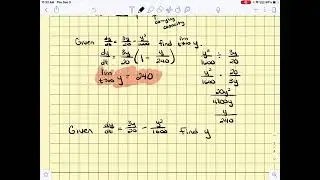 carrying
capacity
Given dy/dt = 3y/20 - y²/1600 find lim t→∞ y.
dy/dt = 3y/20 (1 - y/240)
lim t→∞ y = 240
y²/1600 ÷ 3y/20
y²/1600 · 20/3y
20y²/4800y
y/240
Given dy/dt = 3y/20 - y²/1600 find y